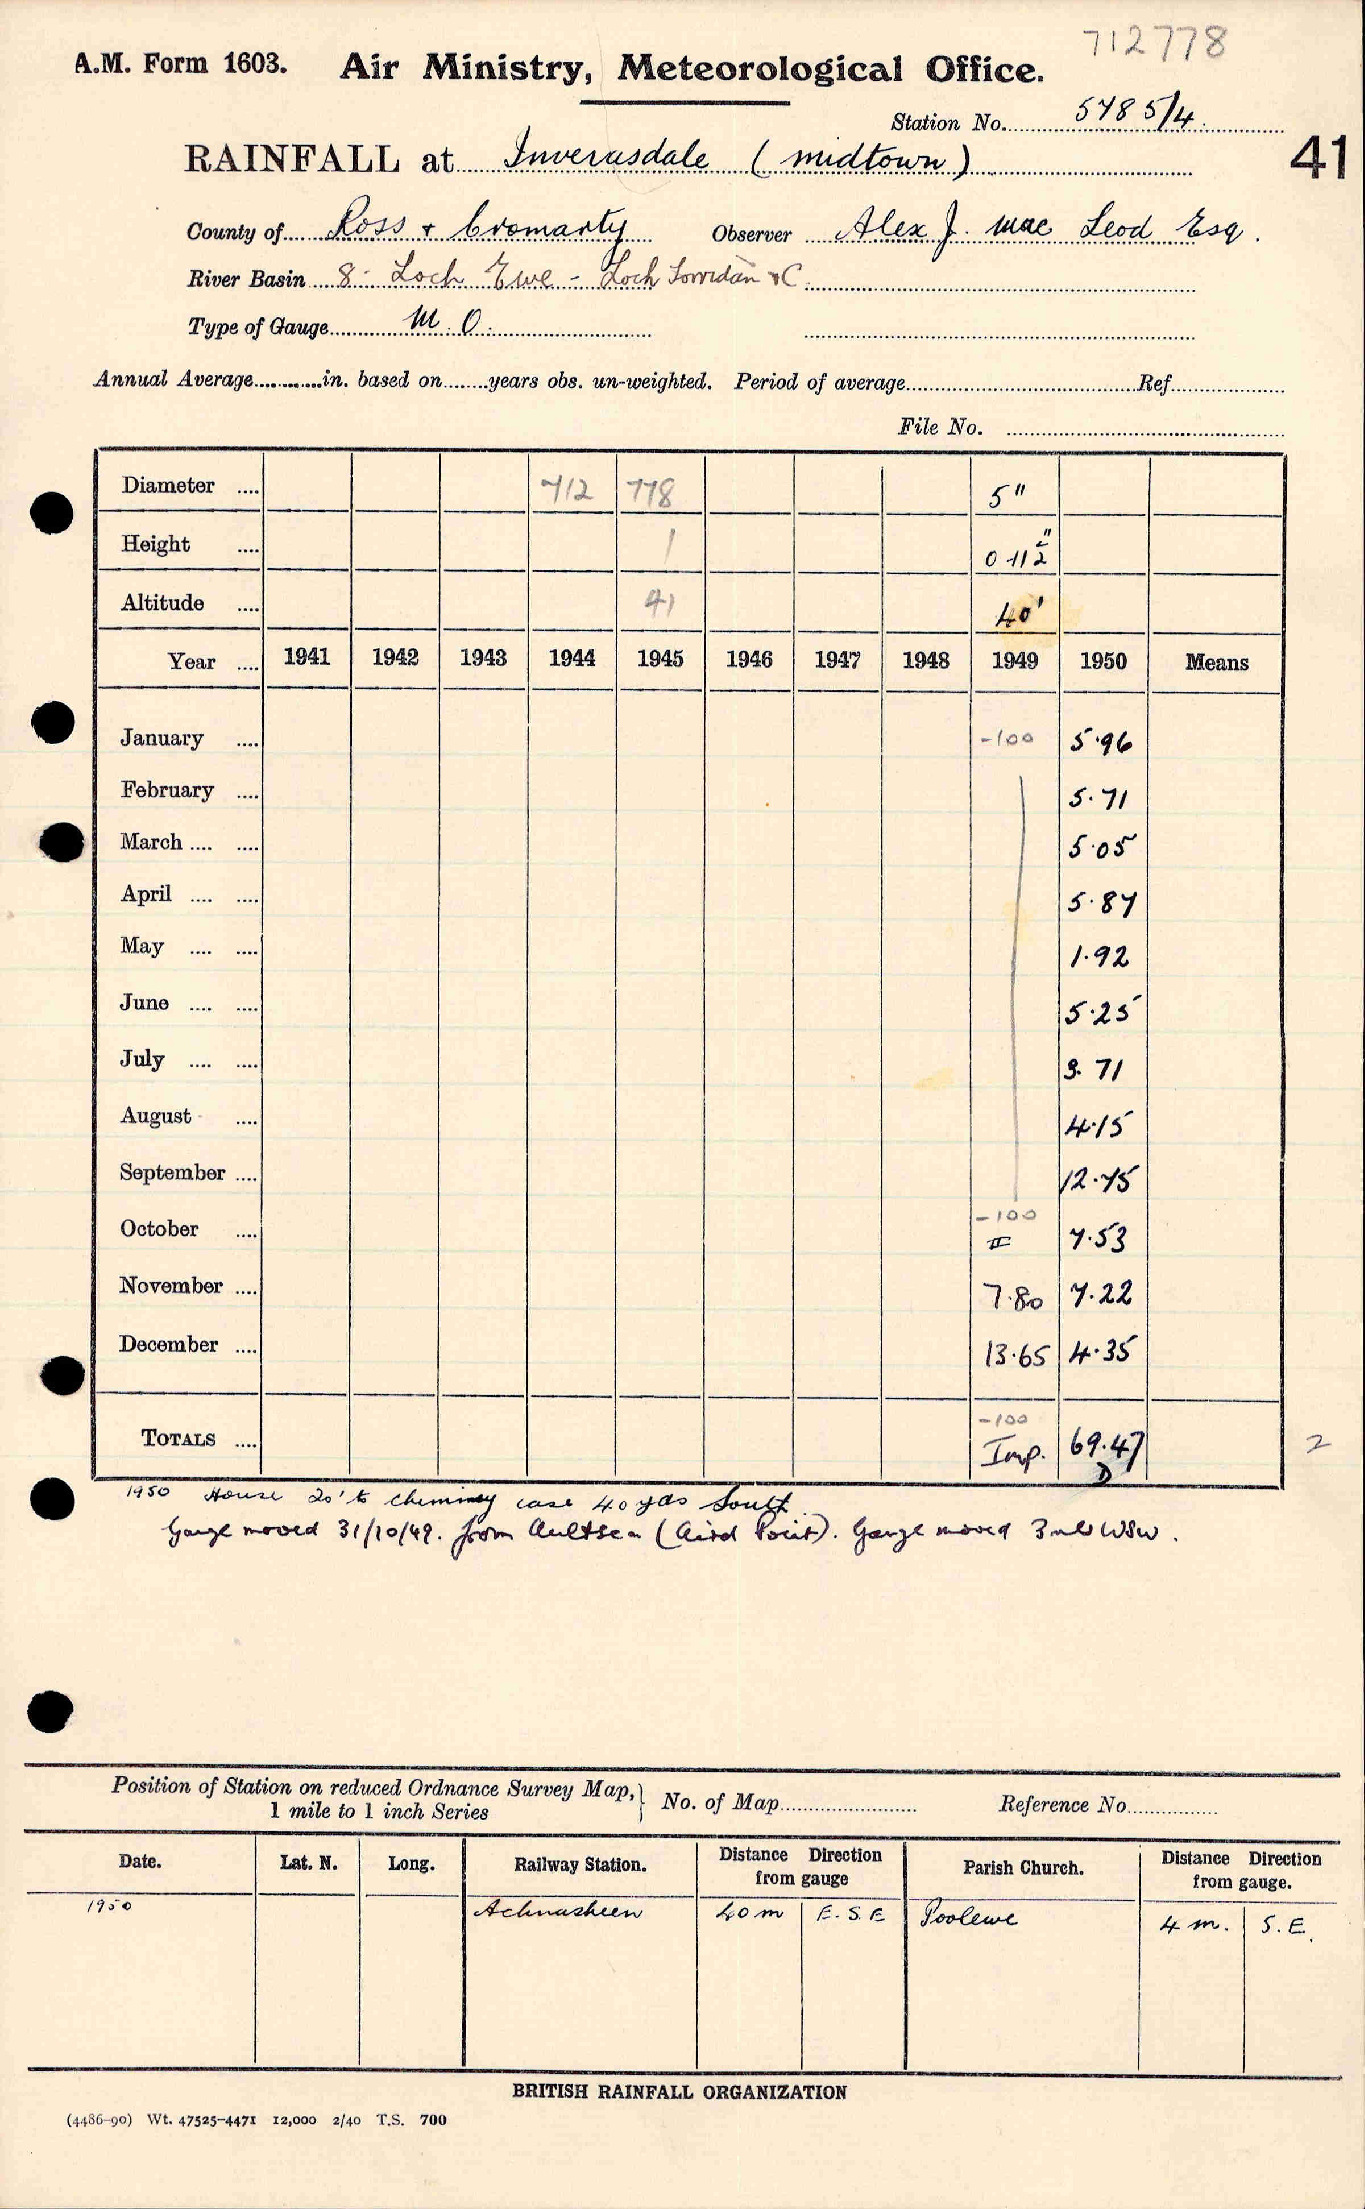 712778
A.M. Form 1603. Air Ministry, Meteorological Office.
Station No. 5785/4
RAINFALL at Inverasdale (midtown)
41
County of Ross + Cromarty Observer Alex J. Mac Leod Esq.
River Basin 8 - Loch Ewe - Loch Torridan &C.
Type of Gauge M.O.
Annual Average............in. based on........years obs. un-weighted. Period of average Ref
File No.
Diameter .... 712 778 5"
Height .... 1 0-11½"
Altitude .... 41 40'
Year .... 1941 1942 1943 1944 1945 1946 1947 1948 1949 1950 Means
January .... -100 5.96
February .... 5.71
March .... .... 5.05
April .... .... 5.87
May .... .... 1.92
June .... .... 5.25
July .... .... 3.71
August .... 4.15
September .... 12.75
-100
October .... 7.53
November .... 7.80 7.22
December .... 13.65 4.35
-100
TOTALS .... Imp. 69.47 2
D
1950 House 20' to chimney case 40 yds South
Gauge moved 31/10/49. from Aultbea (Aird Point). Gauge moved 3 mls WSW.
Position of Station on reduced Ordnance Survey Map,} No. of Map Reference No
1 mile to 1 inch Series
Date. Lat. N. Long. Railway Station. Distance Direction from gauge Parish Church. Distance Direction from gauge.
1950 Achnasheen 40 m E.S.E Poolewe 4 m. S.E.
BRITISH RAINFALL ORGANIZATION
(4486-90) Wt. 47525-4471 12,000 2/40 T.S. 700